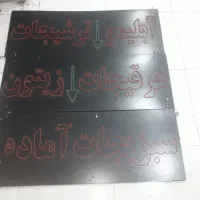 آبلیمو ↓ ترشیجات
عرقیجات ↓ زیتون
سبزیجات آماده